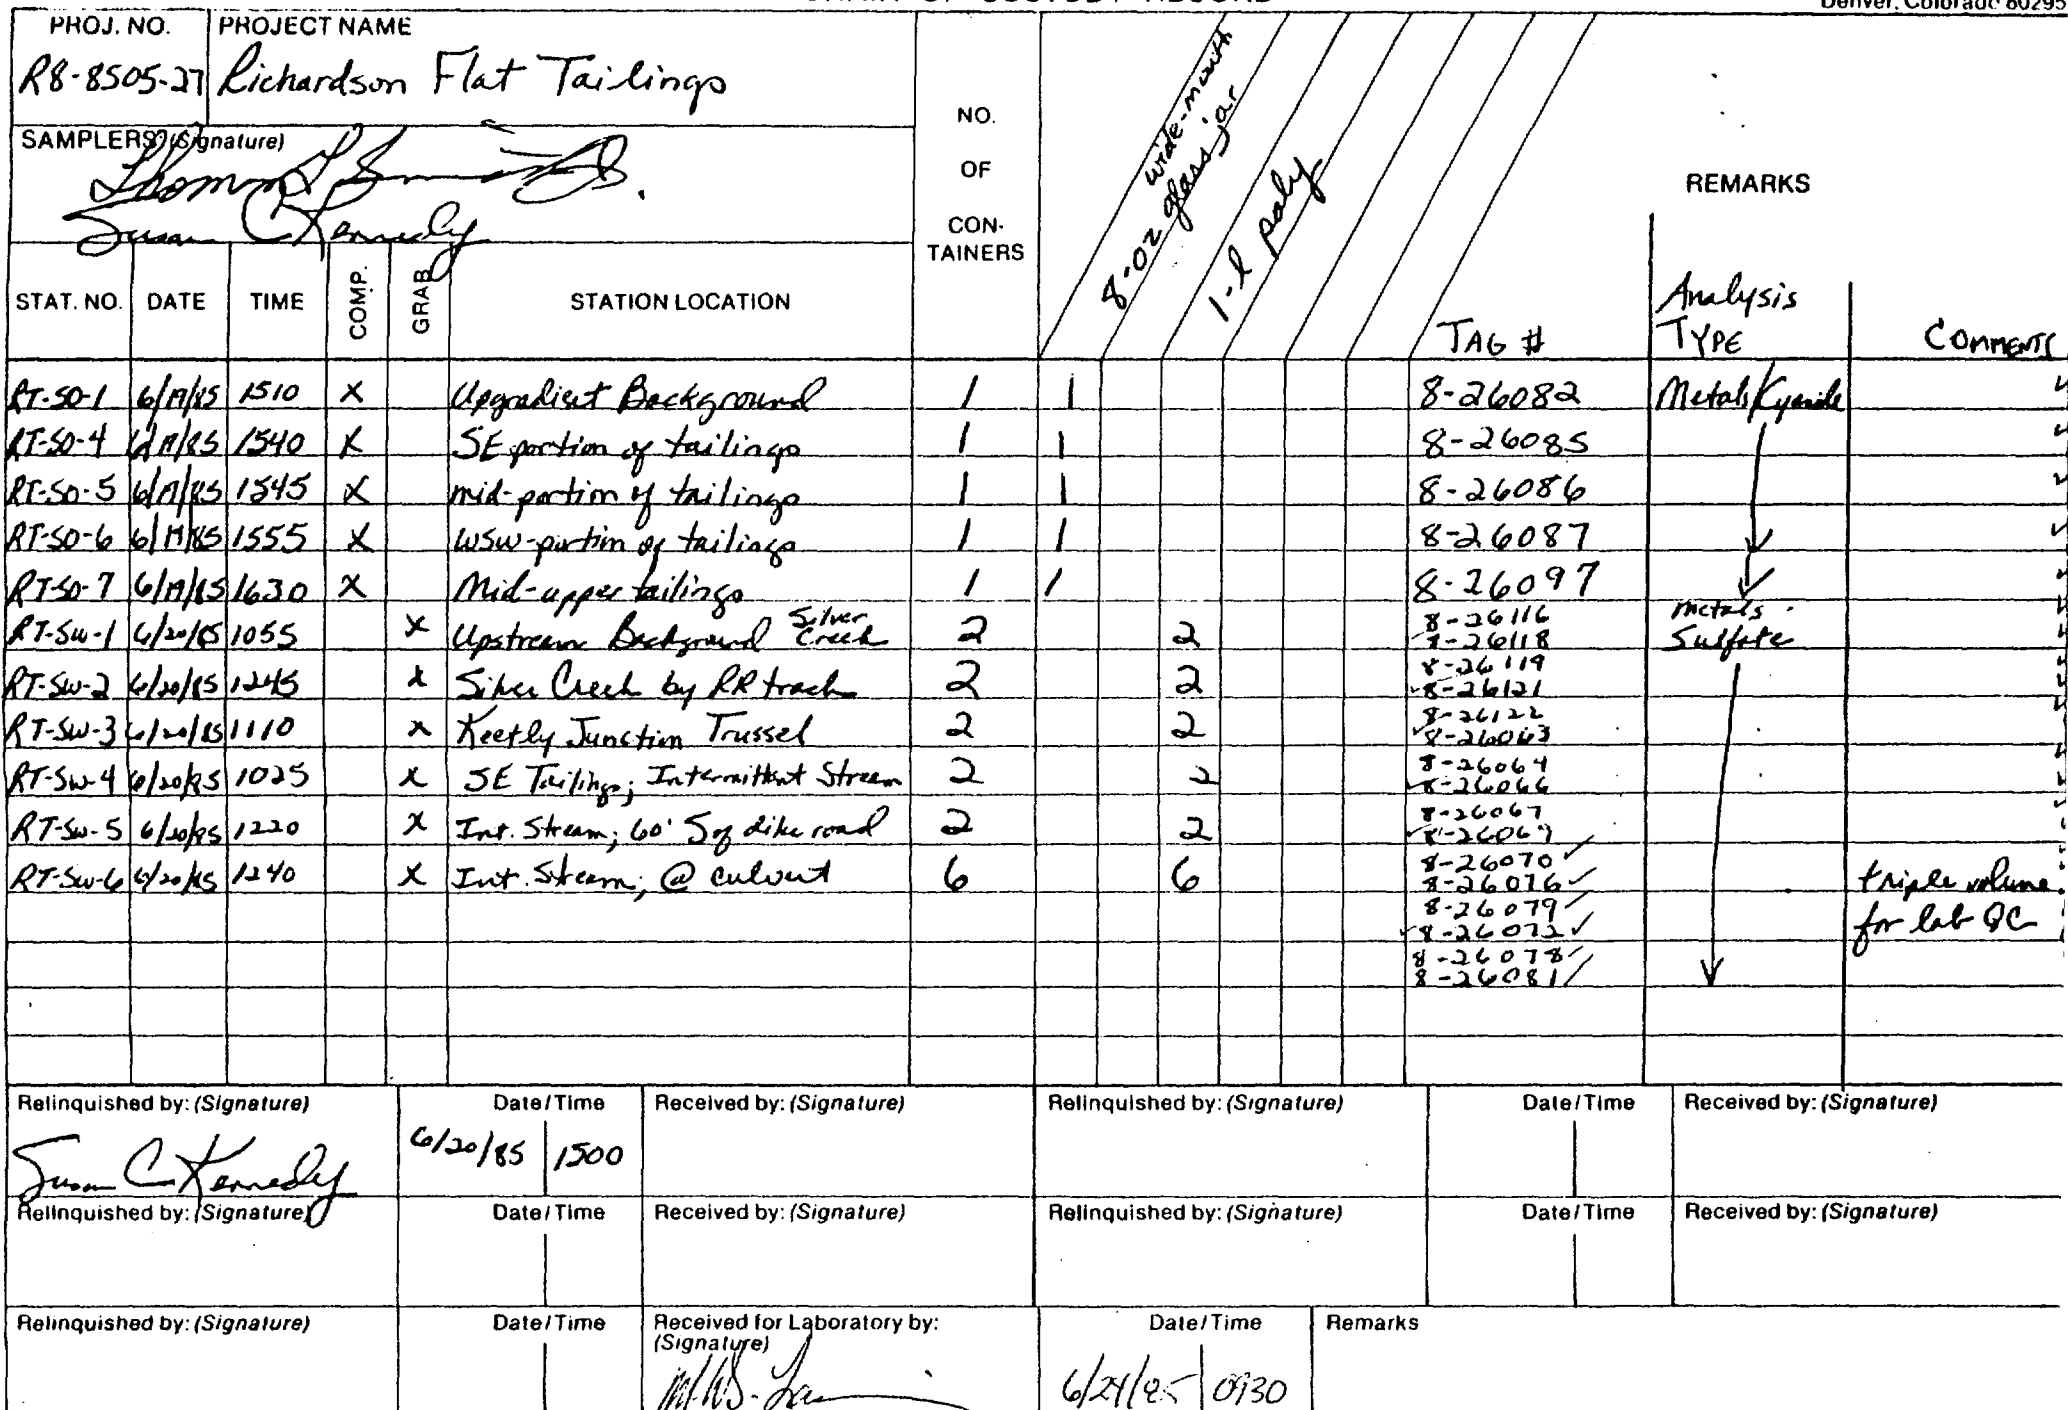 CHAIN OF CUSTODY RECORD
Denver, Colorado 80295
PROJ. NO. PROJECT NAME
R8-8505-27 Richardson Flat Tailings
SAMPLERS: (Signature)
Susan C Kennedy
NO.
OF
CON-
TAINERS
wide-mouth
8-oz glass jar
1-l poly
REMARKS
STAT. NO. DATE TIME COMP. GRAB STATION LOCATION
TAG # Analysis TYPE COMMENTS
RT-SO-1 6/19/85 1510 X Upgradient Background 1 1 8-26082 Metals/Cyanide
RT-SO-4 6/19/85 1540 X SE portion of tailings 1 1 8-26085
RT-SO-5 6/19/85 1545 X mid-portion of tailings 1 1 8-26086
RT-SO-6 6/19/85 1555 X WSW-portion of tailings 1 1 8-26087
RT-SO-7 6/19/85 1630 X Mid-upper tailings 1 1 8-26097
RT-SW-1 6/20/85 1055 X Upstream Background Silver Creek 2 2 8-26116 Metals
8-26118 Sulfate
RT-SW-2 6/20/85 1245 X Silver Creek by RR track 2 2 8-26119
8-26121
RT-SW-3 6/20/85 1110 X Keetly Junction Trussel 2 2 8-26122
8-26063
RT-SW-4 6/20/85 1025 X SE Tailings; Intermittent Stream 2 2 8-26064
8-26066
RT-SW-5 6/20/85 1220 X Int. Stream; 60' S of dike road 2 2 8-26067
8-26069
RT-SW-6 6/20/85 1240 X Int. Stream; @ culvert 6 6 8-26070
8-26076 triple volume
8-26079 for lab QC
8-26072
8-26078
8-26081
Relinquished by: (Signature) Date/Time Received by: (Signature) Relinquished by: (Signature) Date/Time Received by: (Signature)
Susan C Kennedy 6/20/85 1500
Relinquished by: (Signature) Date/Time Received by: (Signature) Relinquished by: (Signature) Date/Time Received by: (Signature)
Relinquished by: (Signature) Date/Time Received for Laboratory by: (Signature) Date/Time Remarks
6/24/85 0930